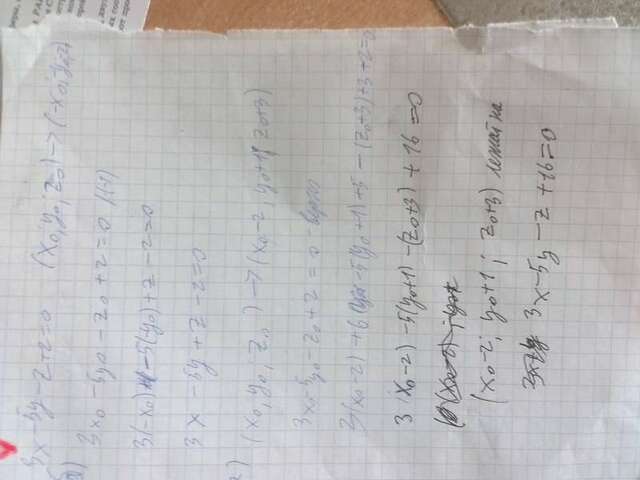 3x-5y-z+2=0 (x₀; y₀; z₀) → (-x₀; y₀; z₀)
3x₀-5y₀-z₀+2=0 |(-1)
3(-x₀) -5(y₀)+z-2=0
3x -5y+z-2=0
(x₀; y₀; z₀) → (x₀-2; y₀+1; z₀+3)
3x₀-5y₀-z₀+2=0 верно
3(x₀-2)+6 -5(y₀+1)+5-(z₀+3)+3+2=0
3(x₀-2)-5(y₀+1)-(z₀+3)+16=0
(x₀-2; y₀+1; z₀+3) лежат на
3x-5y-z+16=0